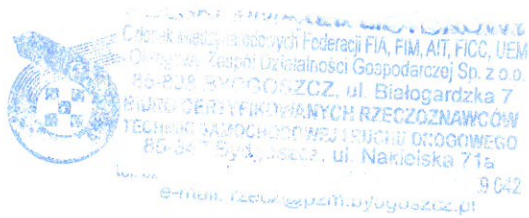 POLSKI ZWIĄZEK MOTOROWY
Członek Międzynarodowych Federacji FIA, FIM, AIT, FICC, UEM
Okręgowy Zespół Działalności Gospodarczej Sp. z o.o.
85-808 BYDGOSZCZ, ul. Białogardzka 7
BIURO CERTYFIKOWANYCH RZECZOZNAWCÓW
TECHNIKI SAMOCHODOWEJ I RUCHU DROGOWEGO
Bydgoszcz, ul. Nakielska 71a
9 042
e-mail: rzecz@pzm.bydgoszcz.pl